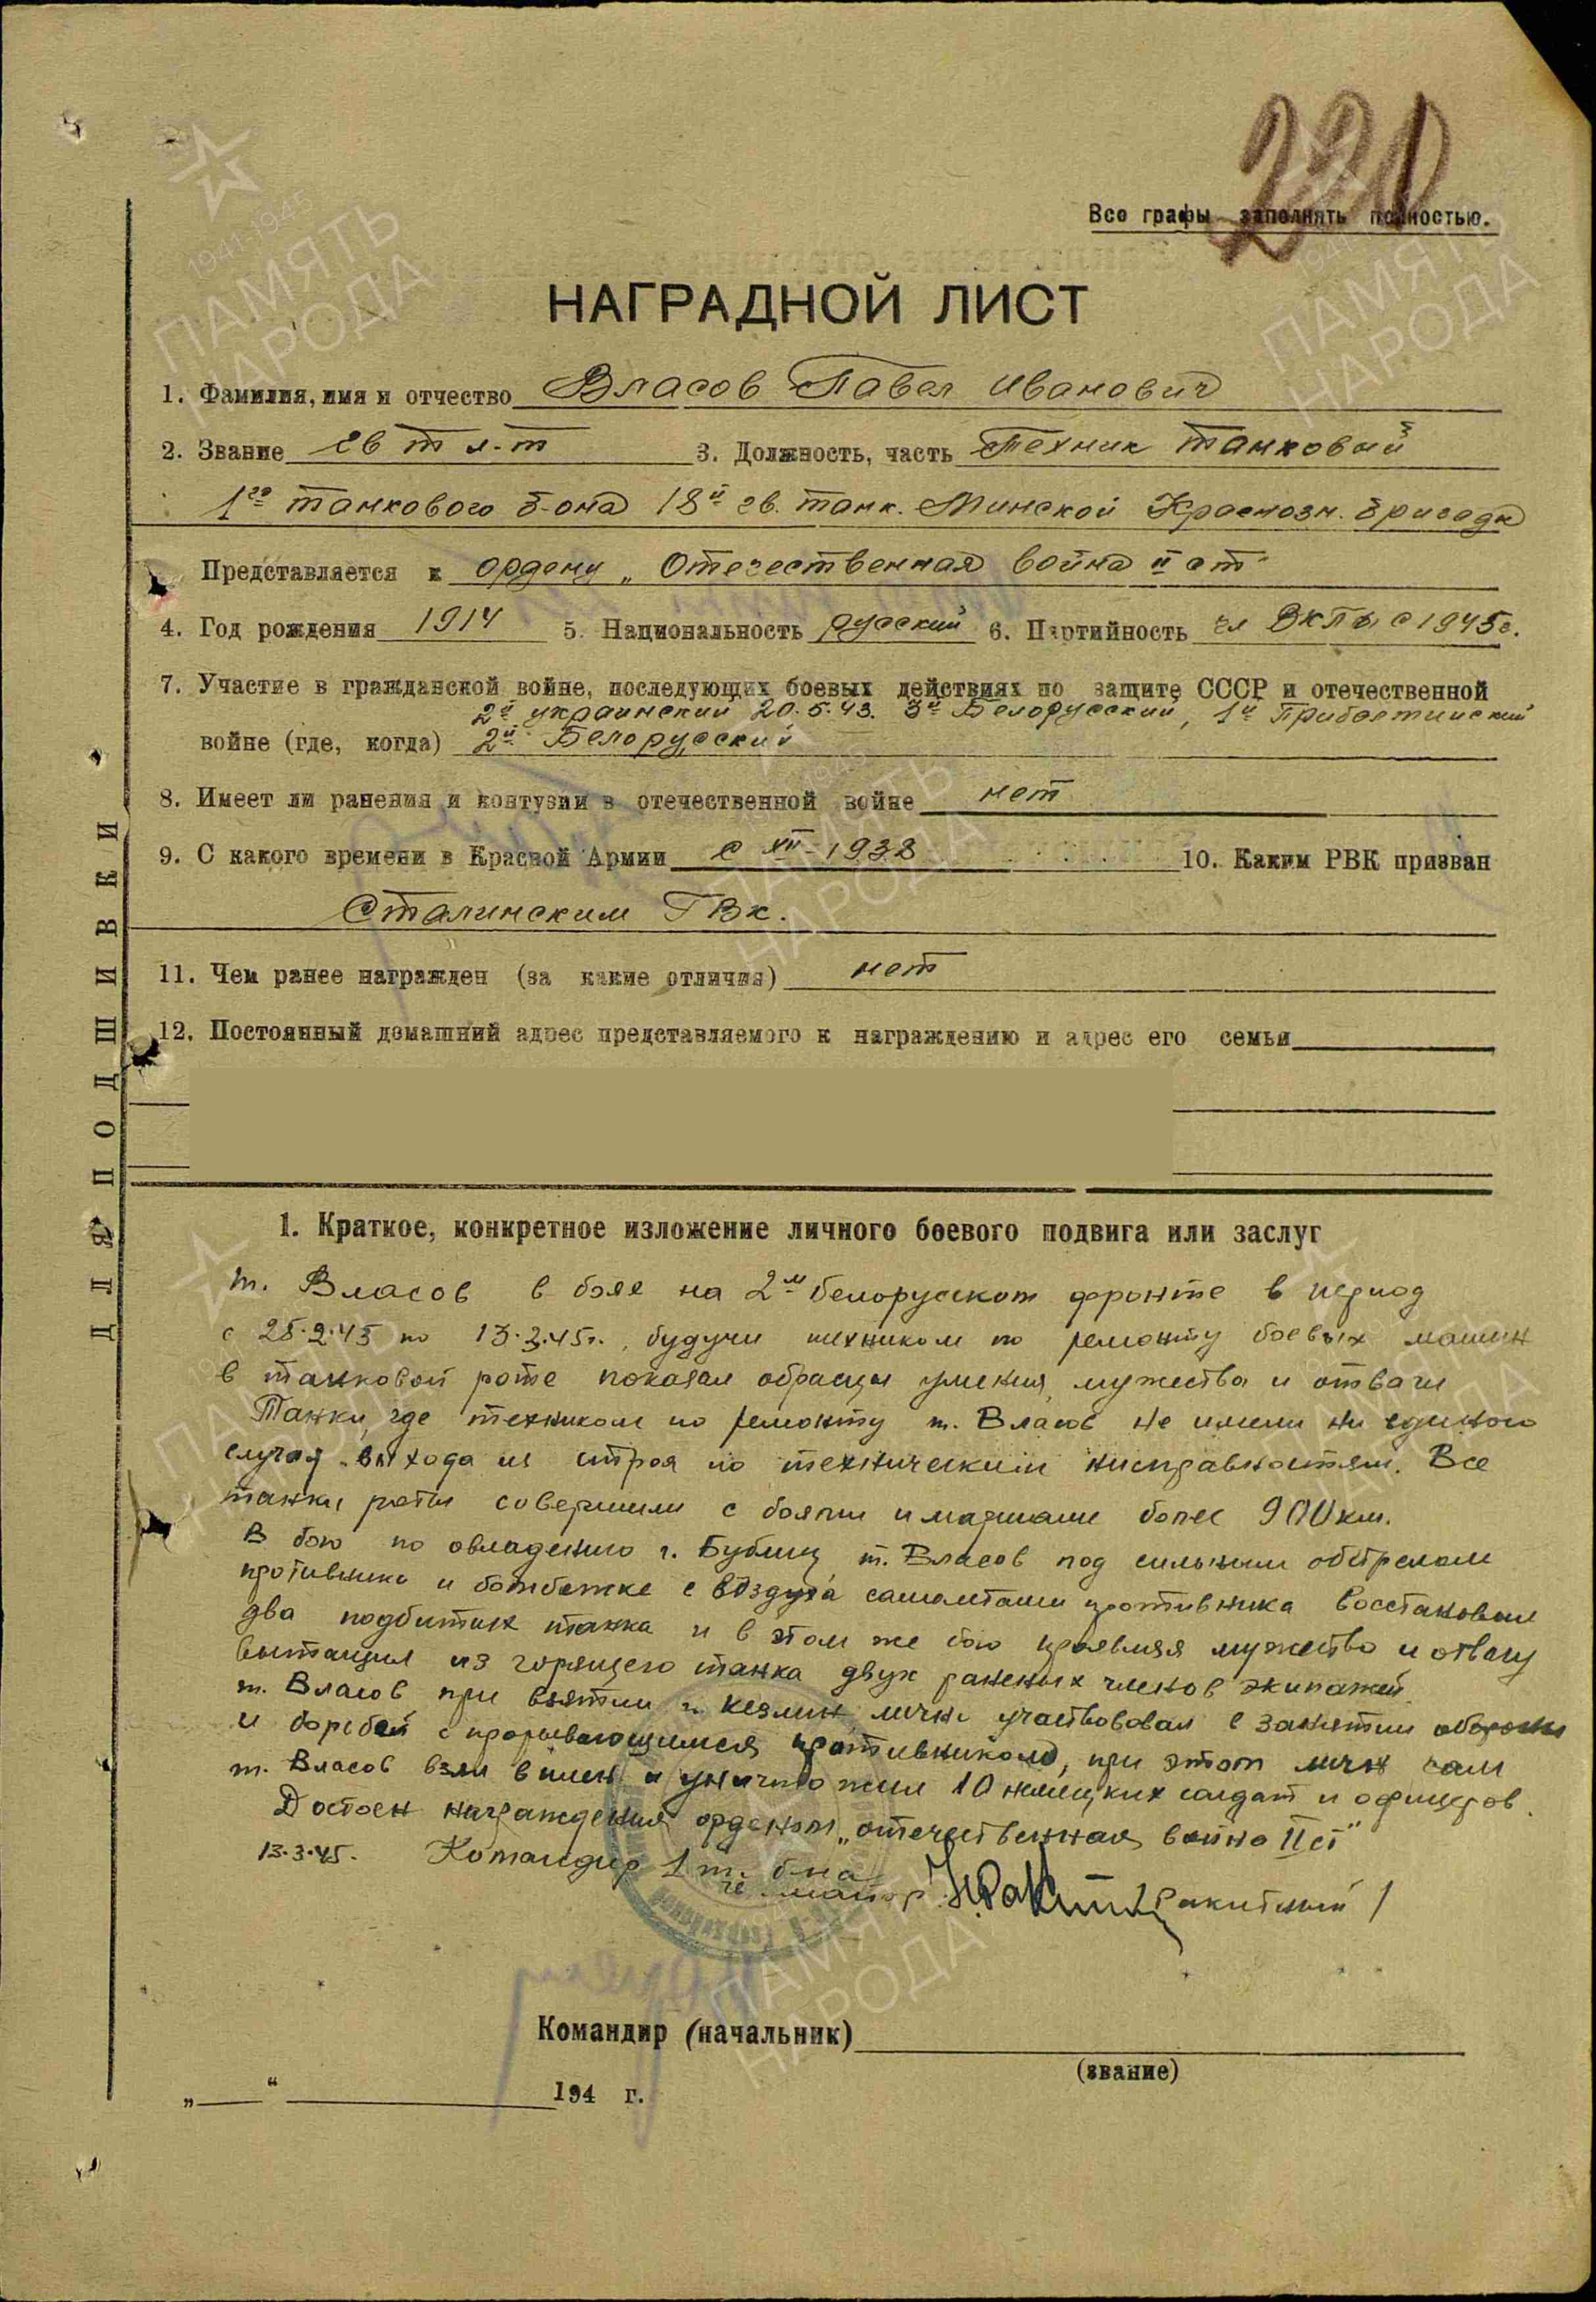 220
Все графы заполнять полностью.
НАГРАДНОЙ ЛИСТ
1. Фамилия, имя и отчество Власов Павел Иванович
2. Звание гв т л-т 3. Должность, часть Техник танковый
1го танкового б-она 18й гв. танк. Минской Краснозн. бригады
Представляется к ордену „Отечественная война II ст
4. Год рождения 1914 5. Национальность русский 6. Партийность чл ВКПб с 1945г.
7. Участие в гражданской войне, последующих боевых действиях по защите СССР и отечественной
2й украинский 20.5.43. 3й Белорусский, 1й Прибалтийский
войне (где, когда) 2й Белорусский
8. Имеет ли ранения и контузии в отечественной войне нет
9. С какого времени в Красной Армии с XII-1938 10. Каким РВК призван
Сталинским ГВК.
11. Чем ранее награжден (за какие отличия) нет
12. Постоянный домашний адрес представляемого к награждению и адрес его семьи
1. Краткое, конкретное изложение личного боевого подвига или заслуг
т. Власов в боях на 2м белорусском фронте в период
с 25.2.45 по 13.3.45г., будучи техником по ремонту боевых машин
в танковой роте показал образцы умения, мужества и отваги
Танки, где техником по ремонту т. Власов не имели ни единого
случая выхода из строя по техническим неисправностям. Все
танки роты совершили с боями и маршами более 900 км.
В бою по овладению г. Бублиц т. Власов под сильным обстрелом
противника и бомбежке с воздуха самолетами противника восстановил
два подбитых танка и в этом же бою проявляя мужество и отвагу
вытащил из горящего танка двух раненых членов экипажей
т. Власов при взятии г. Кезлин лично участвовал в занятии обороны
и борьбой с прорывающимся противником, при этом лично сам
т. Власов взял в плен и уничтожил 10 немецких солдат и офицеров.
Достоин награждения орденом „отечественная война II ст"
13.3.45. Командир 1 т. б-на
гв майор /Ракитный/
Командир (начальник)
(звание)
„ “ 194 г.
ДЛЯ ПОДШИВКИ
1941-1945
ПАМЯТЬ
НАРОДА